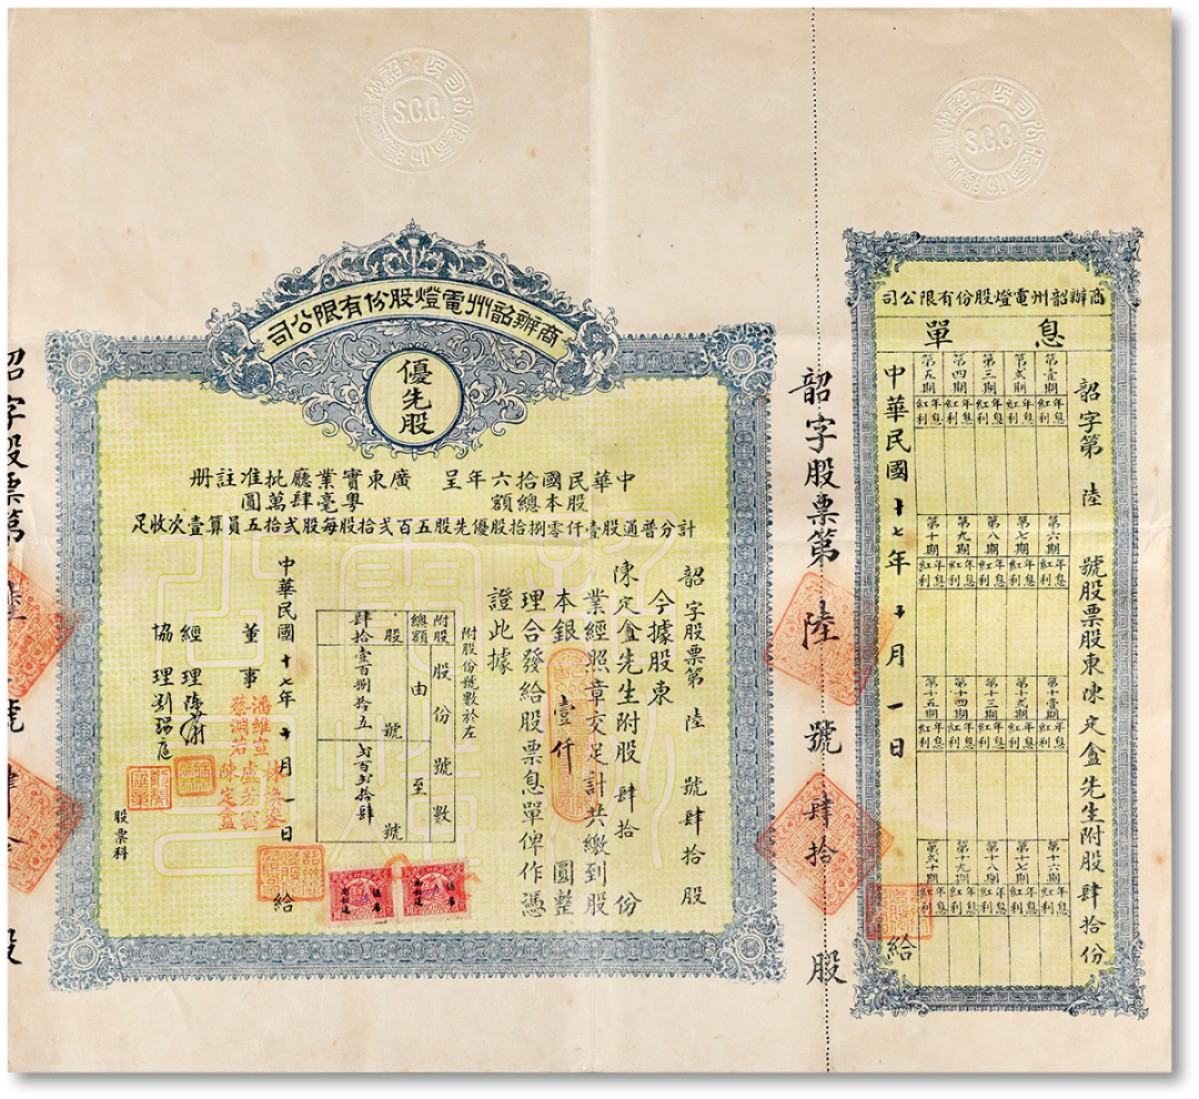 商辦韶州電燈股份有限公司
優先股
中華民國拾六年呈 廣東實業廳批准註册
股本總額 粵毫肆萬圓
計分普通股壹仟零捌拾股優先股五百弍拾股每股弍拾五員算壹次收足
韶字股票第 陸 號肆拾股
今據股東
陳定盦先生附股 肆拾 份
業經照章交足計共繳到股
本銀 壹仟 圓整
理合發給股票息單俾作憑
證此據
附股份號數於左
附股 股份號數
總額 由 至
股 號 號
肆拾 壹百捌拾五
中華民國十七年 十月 一日 給
董事
潘維宣
蔡淵若
陳定盦
經理
協理
股票科
韶字股票第 陸 號 肆拾 股
韶字股票第
股
商辦韶州電燈股份有限公司
息單
韶字第 陸 號股票股東陳定盦先生附股肆拾份
第壹期 年息 紅利
第弍期 年息 紅利
第三期 年息 紅利
第四期 年息 紅利
第五期 年息 紅利
第六期 年息 紅利
第七期 年息 紅利
第八期 年息 紅利
第九期 年息 紅利
第十期 年息 紅利
第十壹期 年息 紅利
第十弍期 年息 紅利
第十三期 年息 紅利
第十四期 年息 紅利
第十五期 年息 紅利
第十六期 年息 紅利
第十七期 年息 紅利
第十八期 年息 紅利
第十九期 年息 紅利
第弍十期 年息 紅利
中華民國十七年 十月 一日 給
S.C.C.
S.C.C.